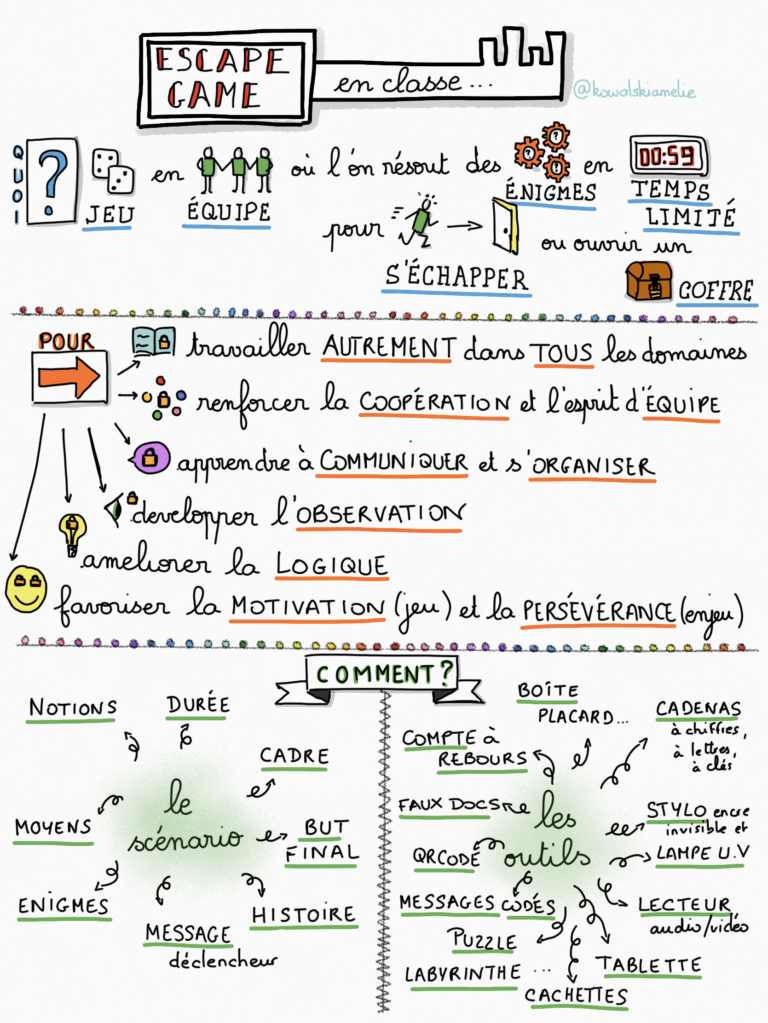 ESCAPE GAME
en classe...
@kowalskiamelie
QUOI
?
JEU
en
ÉQUIPE
où l'on résout des
ÉNIGMES
en
00:59
TEMPS
LIMITÉ
pour
S'ÉCHAPPER
ou ouvrir un
COFFRE
POUR
travailler AUTREMENT dans TOUS les domaines
renforcer la COOPÉRATION et l'esprit d'ÉQUIPE
apprendre à COMMUNIQUER et s'ORGANISER
developper l'OBSERVATION
ameliorer la LOGIQUE
favoriser la MOTIVATION (jeu) et la PERSÉVÉRANCE (enjeu)
COMMENT?
le
scénario
NOTIONS
DURÉE
CADRE
BUT
FINAL
HISTOIRE
MESSAGE
déclencheur
ENIGMES
MOYENS
les
outils
COMPTE à
REBOURS
BOÎTE
PLACARD...
CADENAS
à chiffres,
à lettres,
à clés
STYLO encre
invisible et
LAMPE U.V
LECTEUR
audio/vidéo
TABLETTE
CACHETTES
LABYRINTHE ...
PUZZLE
MESSAGES CODÉS
QRCODE
FAUX DOCS